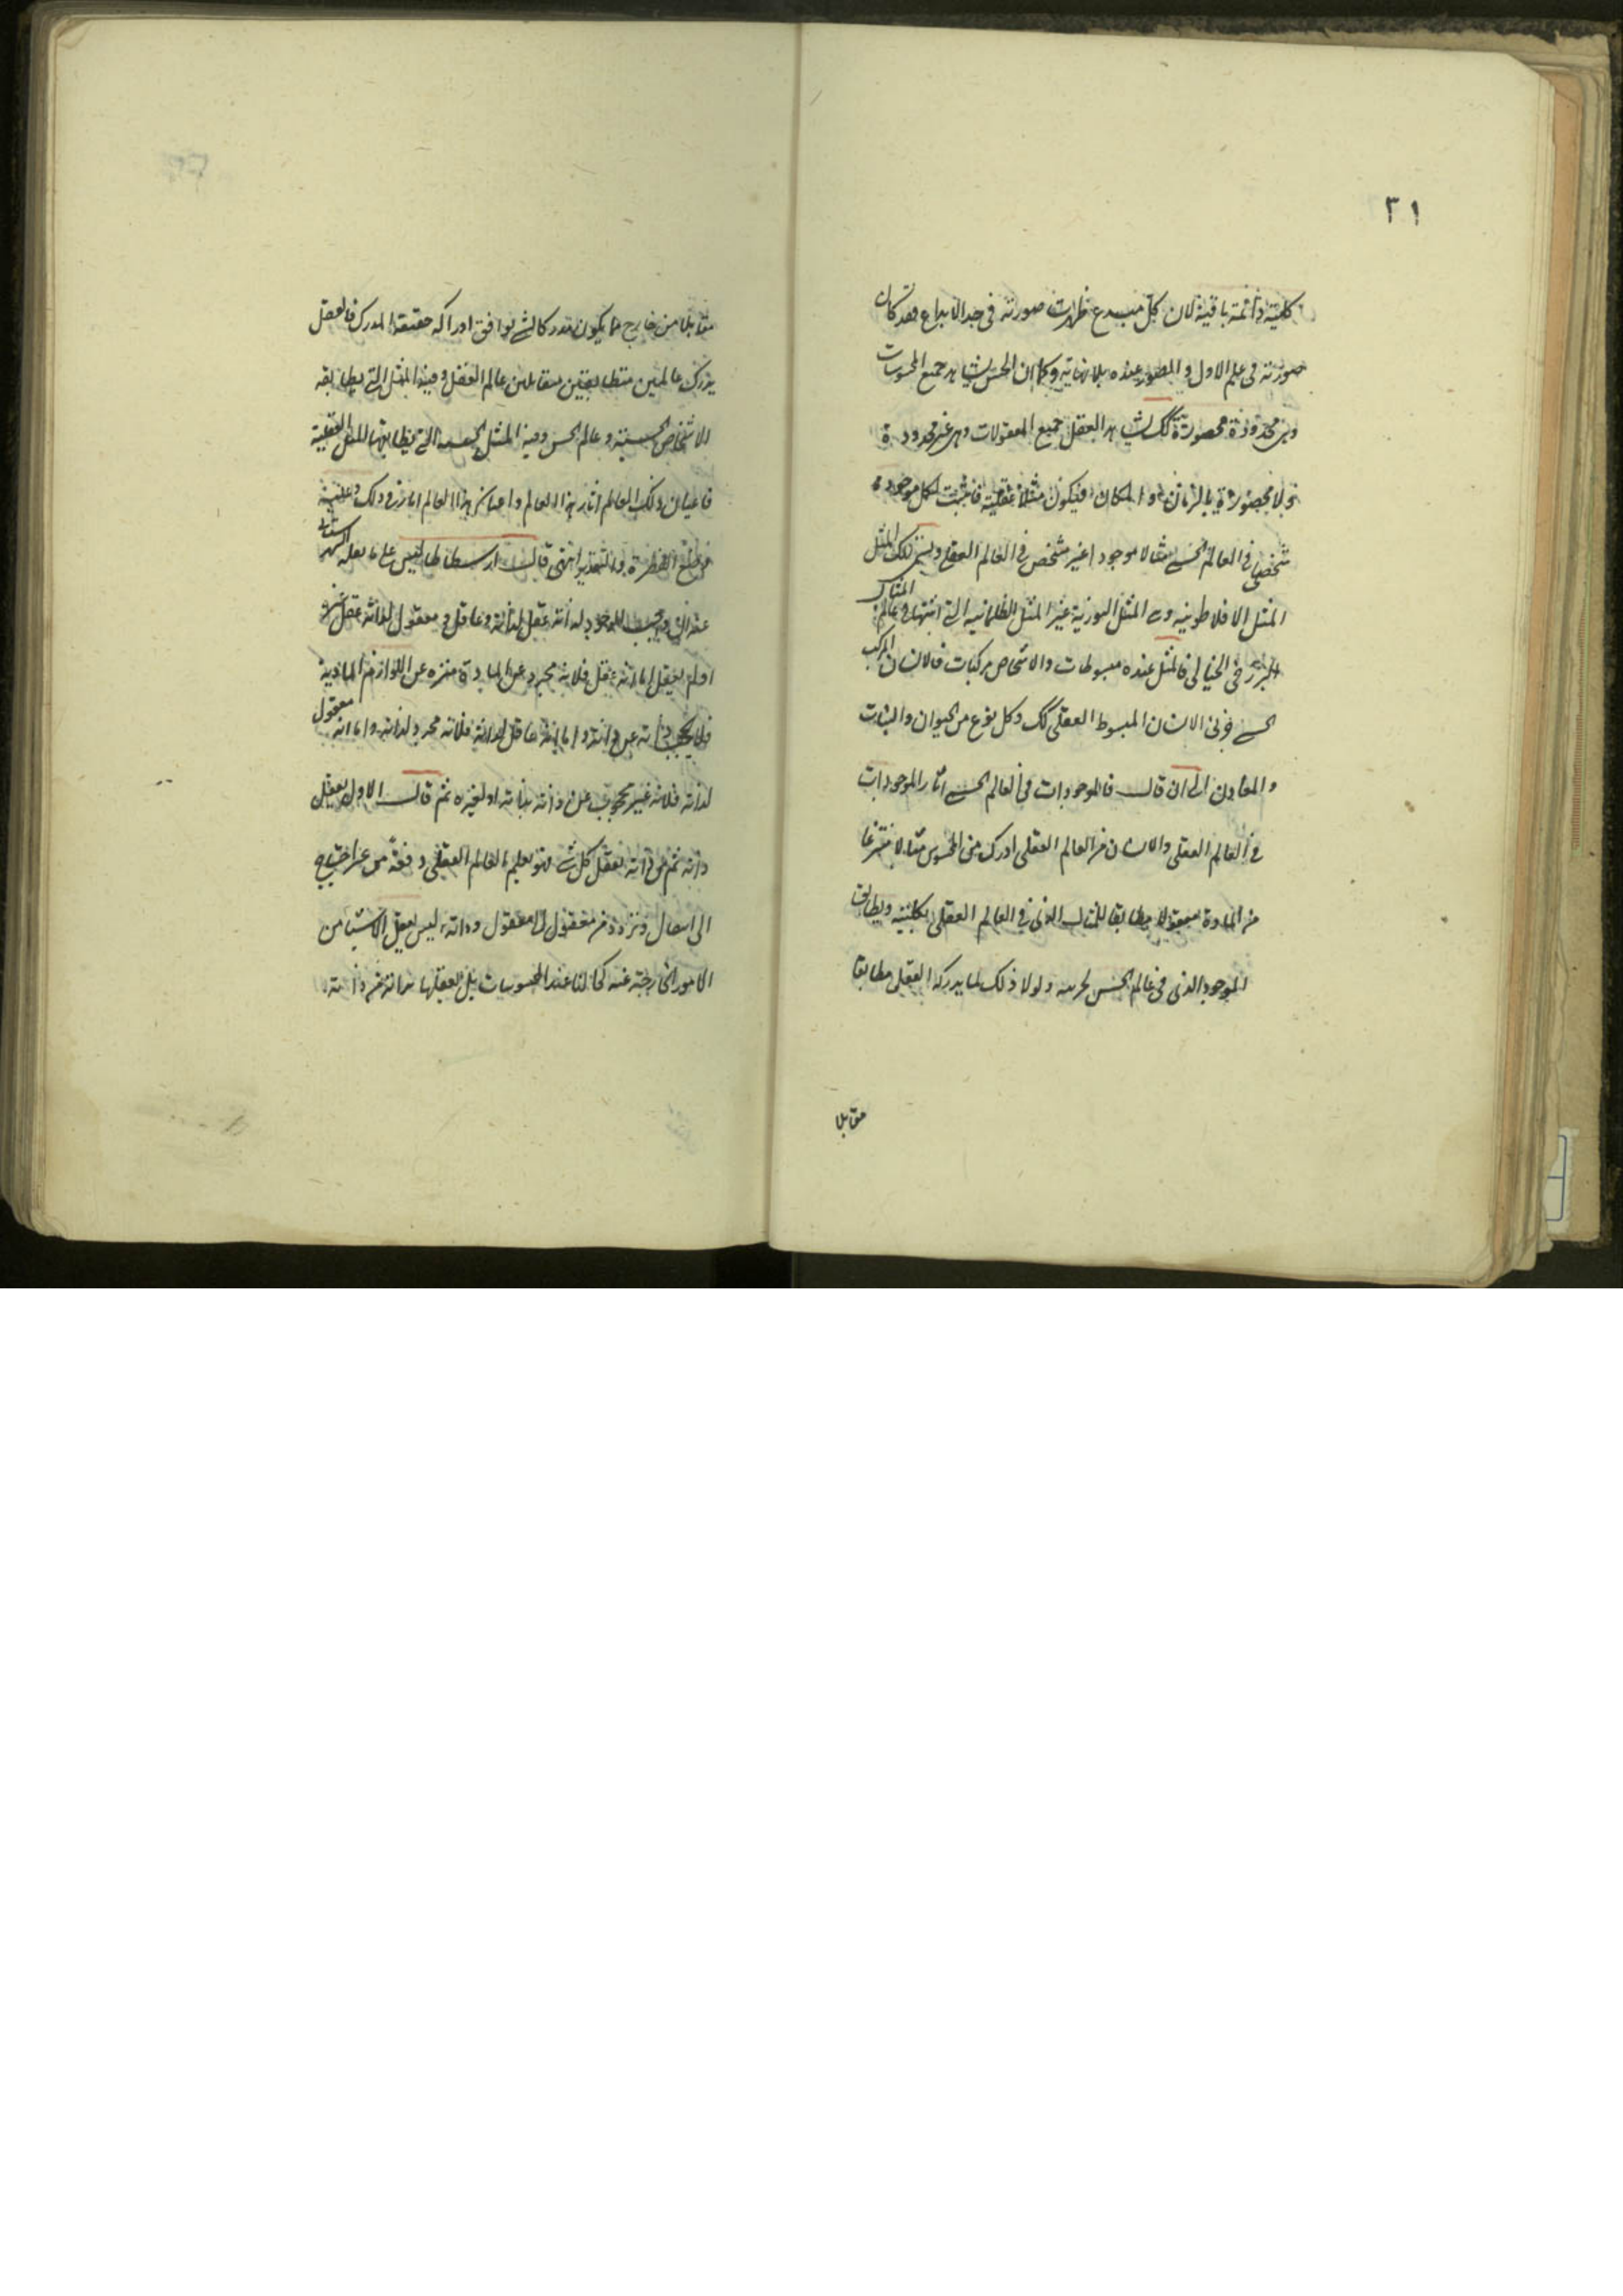 ٣١
كلية دائمة باقية لان كل مبدع ظهرت صورته فى حد الابداع فقد كانت
صورته فى علم الاول و الصور عنده بلا نهاية وكما ان الحس يشاهد جميع المحسوسات
وهى محدودة محصورة كك يشاهد العقل جميع المعقولات وهى غير محدودة
ولا محصورة بالزمان و المكان فيكون مثلا عقلية فاثبت لكل موجود
شخصى فى العالم الحسى مثالا موجودا غير مشخص فى العالم العقلى ويسمى تلك المثل
المثل الافلاطونية وهى المثل النورية غير المثل الظلمانية التى اثبتها فى عالم المثال
فى الخيالى فالمثل عنده مبسوطات والاشخاص مركبات فالانسان المركب
الحسى جزئى الانسان المبسوط العقلى كك وكل نوع من الحيوان والنبات
والمعادن الى ان قال فالموجودات فى العالم الحسى اثار الموجودات
فى العالم العقلى والانسان فى العالم العقلى ادرك من المحسوس مثالا منتزعا
من المادة معقولا مطابقا للمثال الذى فى العالم العقلى بكليته ويطابق
الموجود الذى فى عالم الحس بجزئيته ولولا ذلك لما يدركه العقل مطابقا
مقابلا
مقابلا من خارج فما يكون مدركا لشئ يوافق ادراكه حقيقة المدرك فالعقل
يدرك عالمين متطابقين متقابلين عالم العقل وفيه المثل التى يطابقه
الاشخاص الحسية وعالم الحس وفيه المثل الحسية التى يطابقها المثل العقلية
فاعيان ذلك العالم اثار هذا العالم واعيان هذا العالم اثار فى ذلك وعليه
وضع الفطرة والتقدير انتهى قال ارسطاطاليس على ما نقله الشهرستانى
عنه ان واجب الوجود لذاته عقل لذاته وعاقل ومعقول لذاته عقل غيره
اولم يعقل اما انه عقل فلانه مجرد عن المادة منزه عن اللوازم المادية
فلا يحجب ذاته عن ذاته واما انه عاقل لذاته فلانه مجرد لذاته واما انه معقول
لذاته فلانه غير محجوب عن ذاته بذاته او لغيره ثم قال الاول يعقل
ذاته ثم من ذاته يعقل كل شئ فهو يعلم العالم العقلى دفعة من غير احتياج
الى انتقال وتردد من معقول الى معقول وذاته ليس يعقل الاشياء من
الامور الخارجة عنه كحالنا عند المحسوسات بل يعقلها من ذاته